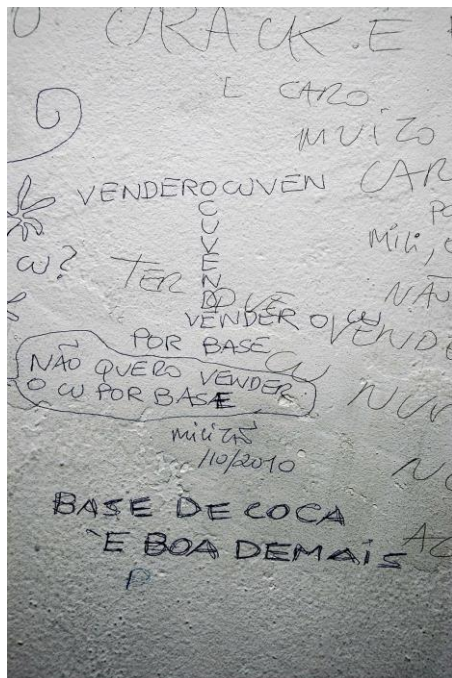 O CRACK. É
É CARO.
MUITO
CAR
VENDEROCUVEN
OCUVENDO
CU?
TER
MILI,
NÃO
VENDER O CU
VENDE
POR BASE
CU
NÃO QUERO VENDER
O CU POR BASE
NUN
/10/2010
BASE DE COCA
É BOA DEMAIS